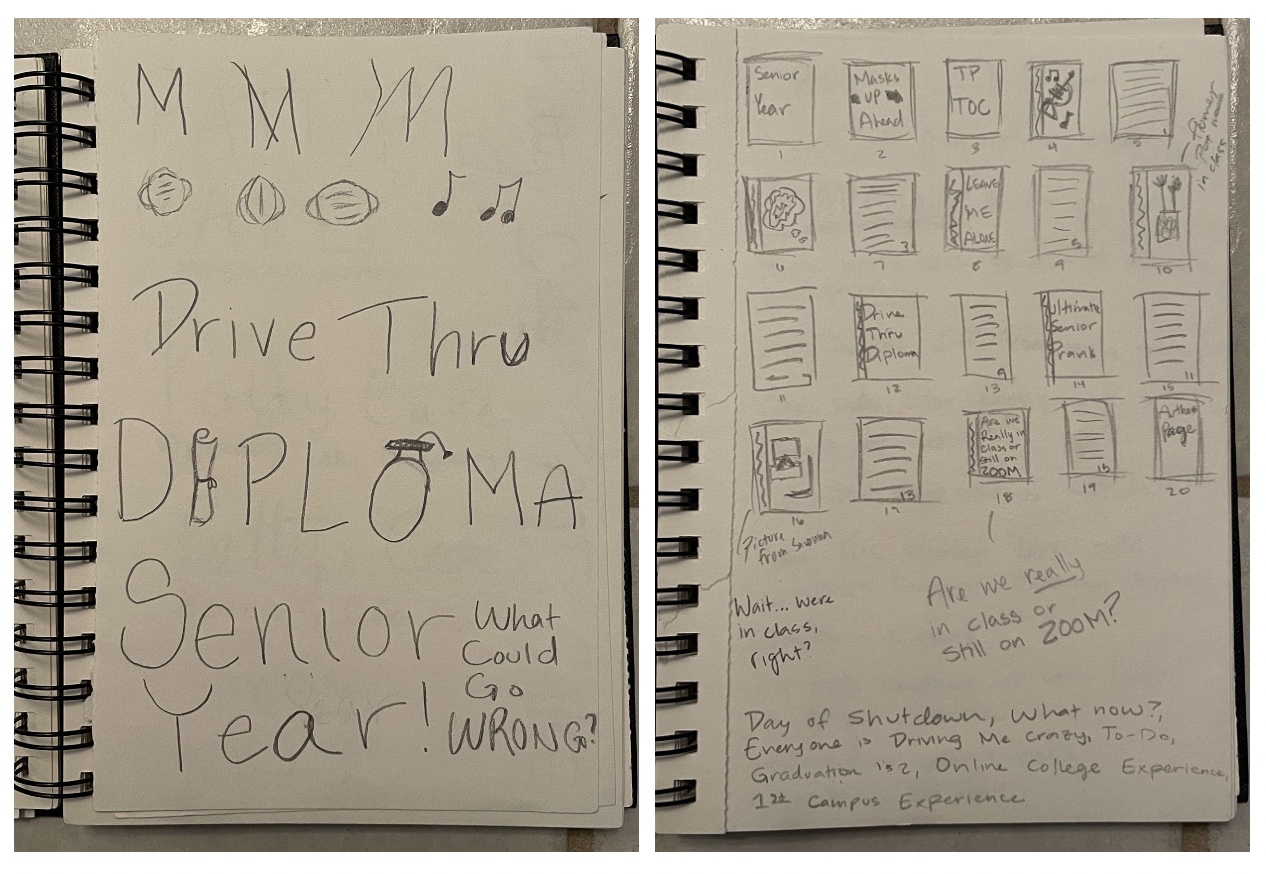 M M M
Drive Thru
DIPLOMA
Senior
Year!
What
Could
Go
WRONG?
Senior
Year
1
Masks
UP
Ahead
2
TP
TOC
3
4
5
6
3
7
LEAVE
ME
ALONE
8
5
9
10
in class
7
11
Drive
Thru
Diploma
12
9
13
Ultimate
Senior
Prank
14
11
15
16
Picture
from
13
17
Are we
Really in
class or
still on
ZOOM
18
15
19
Author
Page
20
Wait... were
in class,
right?
Are we really
in class or
still on ZOOM?
Day of Shutdown, What now?,
Everyone is Driving Me Crazy, To-Do,
Graduation 1 & 2, Online College Experience,
1st Campus Experience